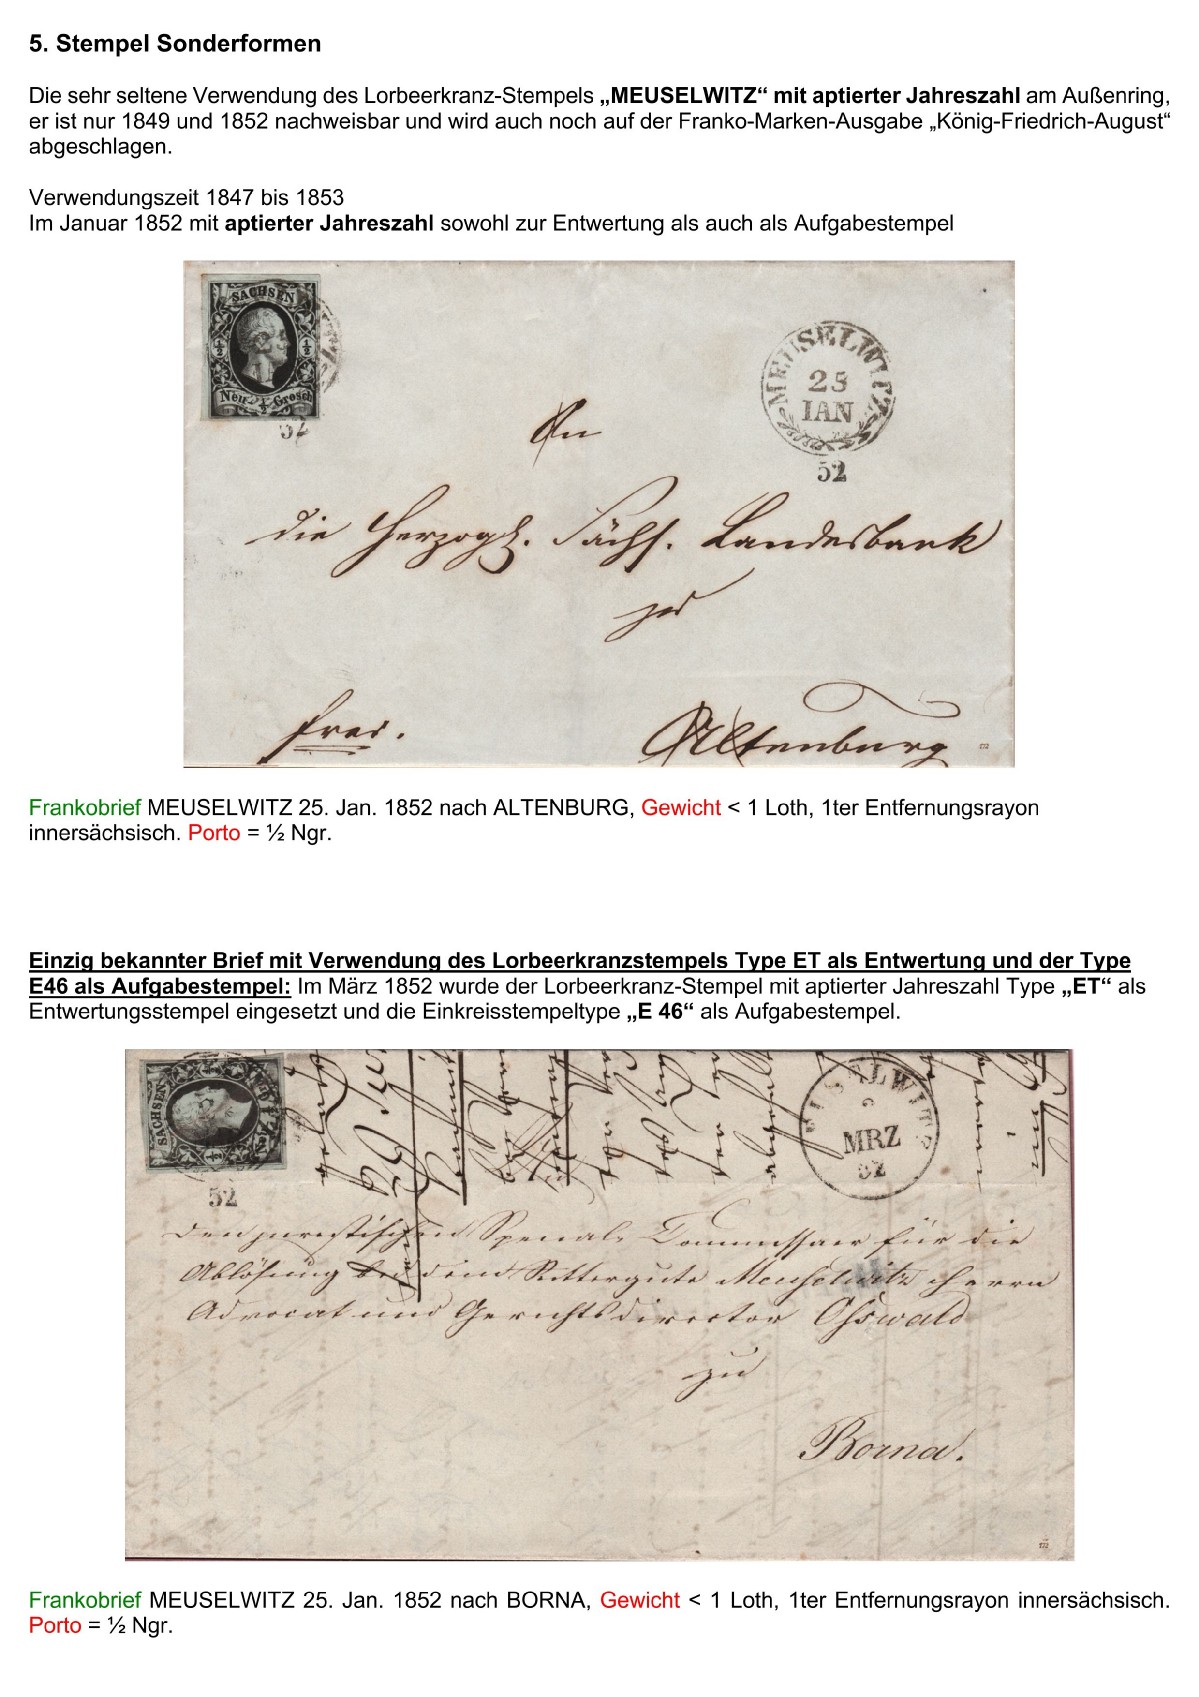 5. Stempel Sonderformen
Die sehr seltene Verwendung des Lorbeerkranz-Stempels „MEUSELWITZ“ mit aptierter Jahreszahl am Außenring,
er ist nur 1849 und 1852 nachweisbar und wird auch noch auf der Franko-Marken-Ausgabe „König-Friedrich-August“
abgeschlagen.
Verwendungszeit 1847 bis 1853
Im Januar 1852 mit aptierter Jahreszahl sowohl zur Entwertung als auch als Aufgabestempel
SACHSEN
½ ½
Neu ½ Grosch
52
MEUSELWITZ
25
IAN
52
An
die Herzogl. Sächs. Landesbank
zu
frei.
Altenburg
Frankobrief MEUSELWITZ 25. Jan. 1852 nach ALTENBURG, Gewicht < 1 Loth, 1ter Entfernungsrayon
innersächsisch. Porto = ½ Ngr.
Einzig bekannter Brief mit Verwendung des Lorbeerkranzstempels Type ET als Entwertung und der Type
E46 als Aufgabestempel: Im März 1852 wurde der Lorbeerkranz-Stempel mit aptierter Jahreszahl Type „ET“ als
Entwertungsstempel eingesetzt und die Einkreisstempeltype „E 46“ als Aufgabestempel.
SACHSEN
52
MRZ
52
den juristischen Special- Commissaer für die
Ablösung bei dem Rittergute Meuselwitz Herrn
Advocat und Gerichtsdirector Osswald
zu
Borna.
Frankobrief MEUSELWITZ 25. Jan. 1852 nach BORNA, Gewicht < 1 Loth, 1ter Entfernungsrayon innersächsisch.
Porto = ½ Ngr.